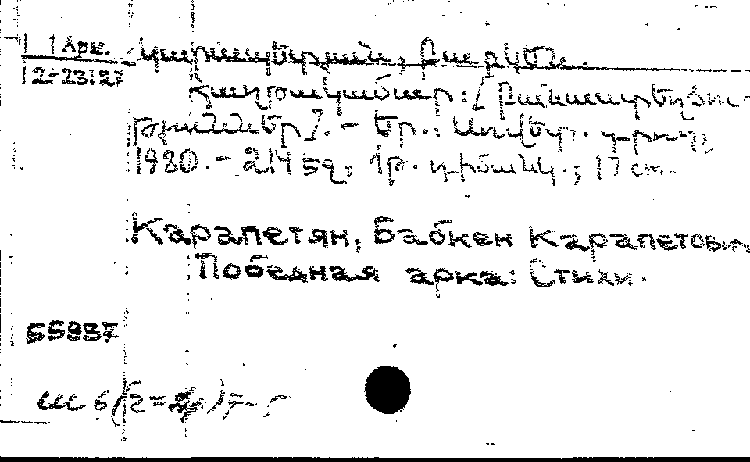 1 Арм.
2-23127
Կարապետյան, Բաբկեն.
Հաղթակամար: [Բանաստեղծու-
թյուններ]. – Եր.: Սովետ. գրող,
1980. – 214 էջ, 1 թ. դիմանկ.; 17 սմ.
Карапетян, Бабкен Карапетович
Победная арка: Стихи.
55837